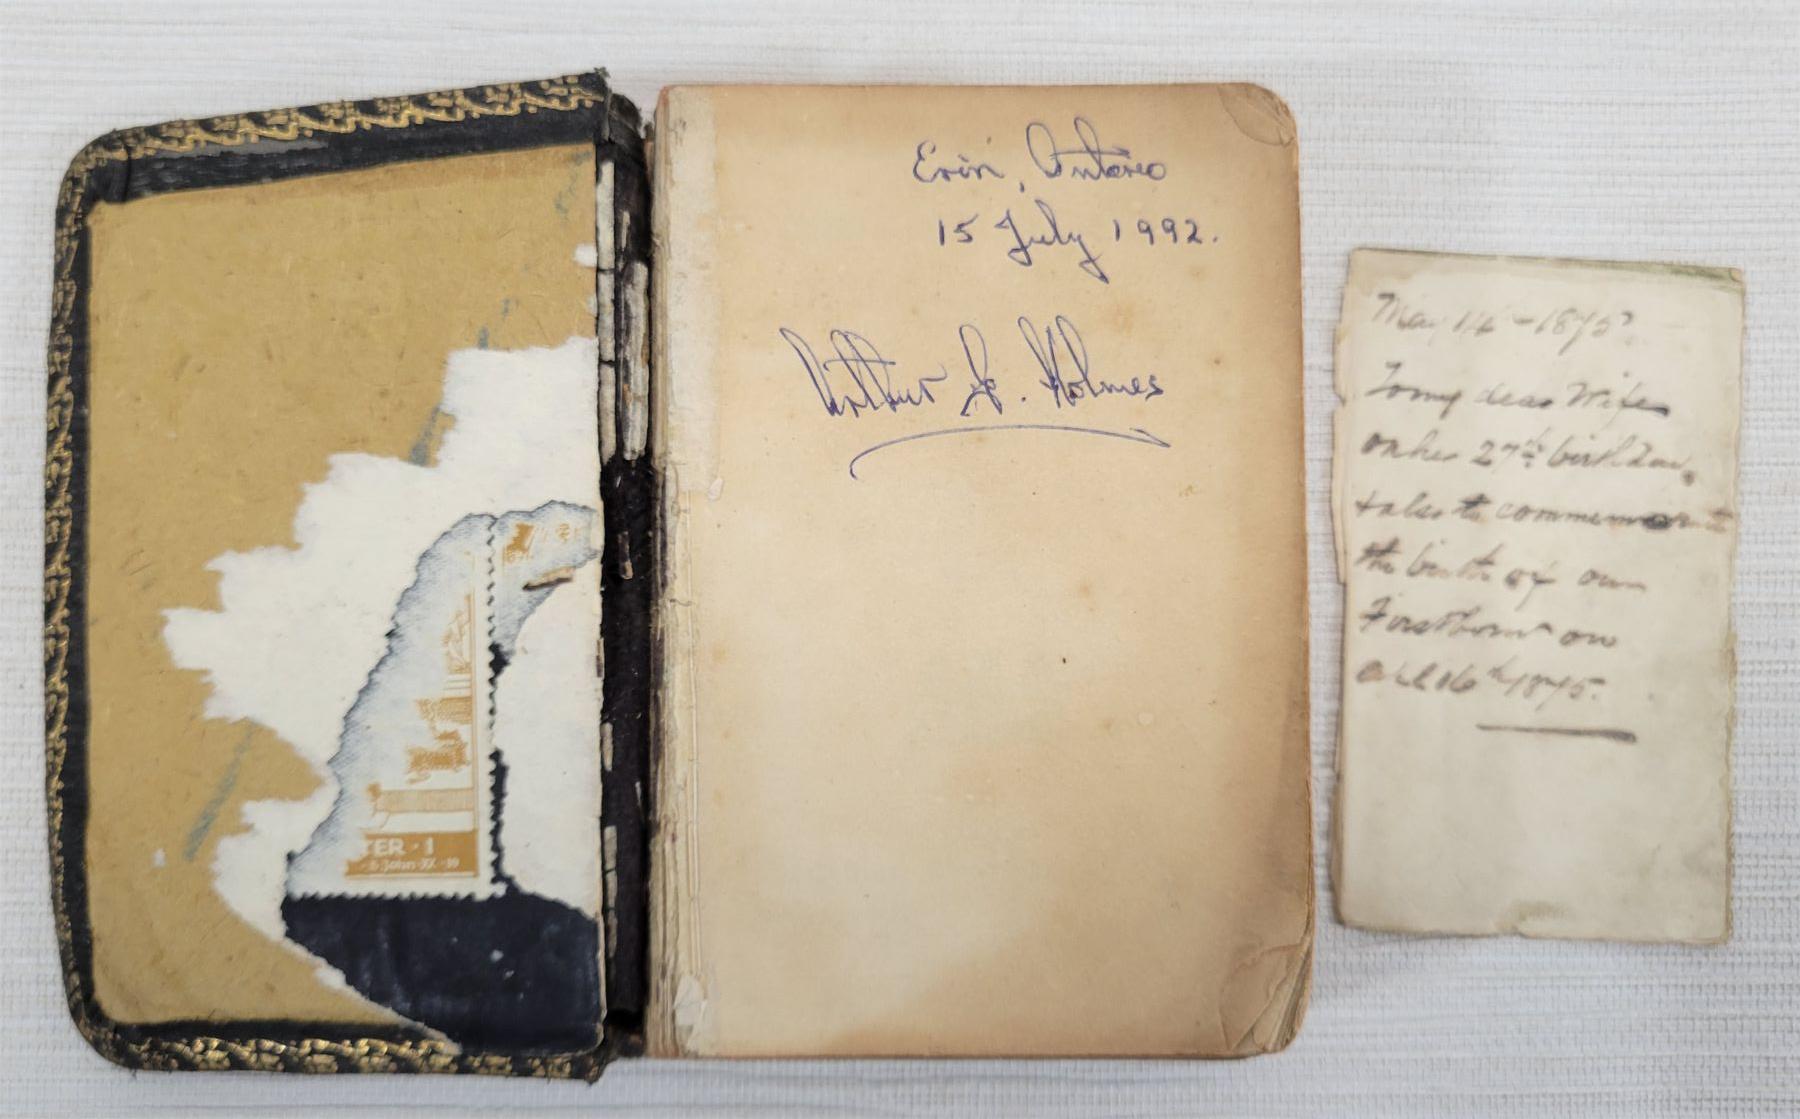 TER · 1
John · XX · 19
Erin, Ontario
15 July 1992.
Arthur S. Holmes
May 14 - 1875
To my dear Wife
on her 27th birthday
+ also to commemorate
the birth of our
Firstborn on
16th 1875.